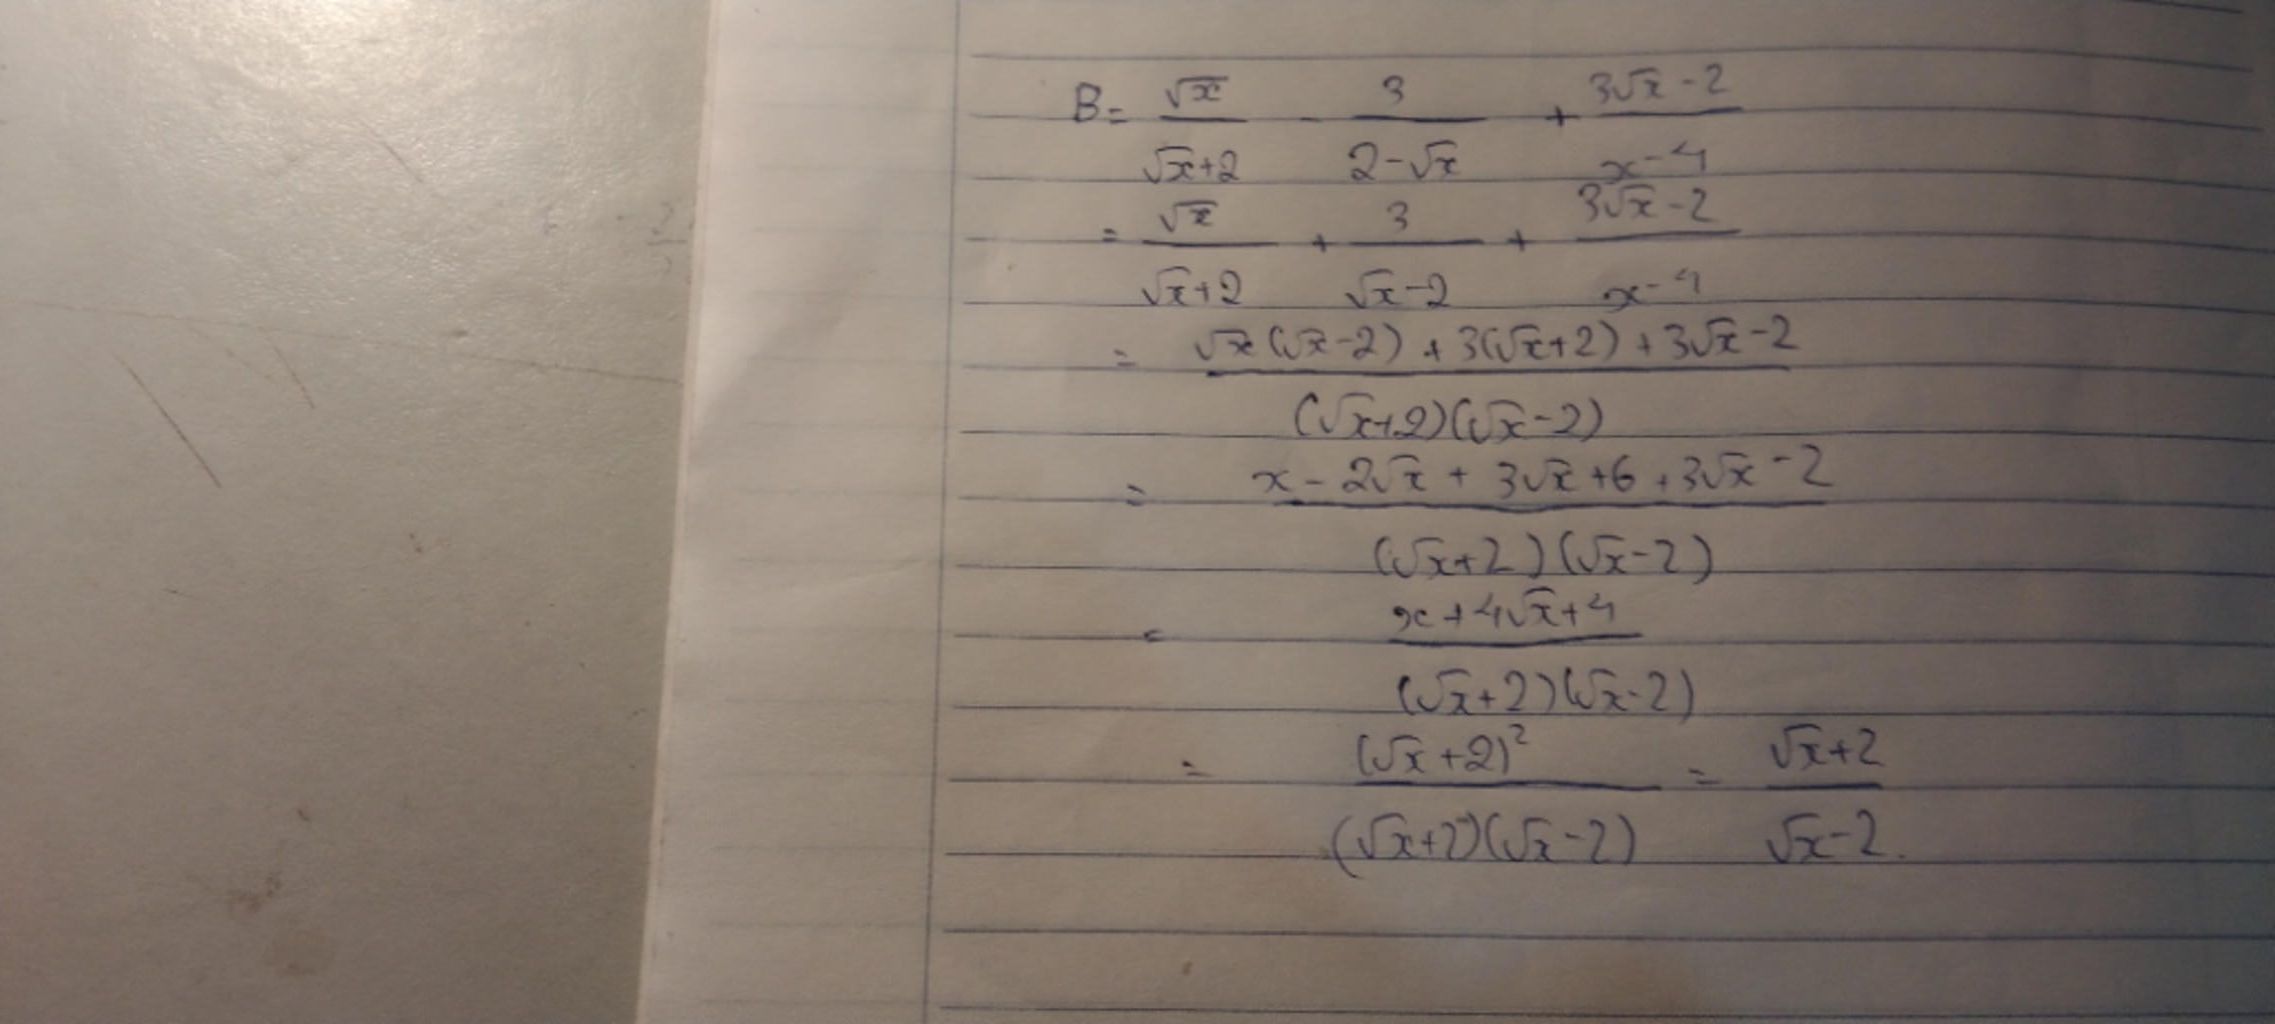 B = √x / (√x+2) - 3 / (2-√x) + (3√x-2) / (x-4)
= √x / (√x+2) + 3 / (√x-2) + (3√x-2) / (x-4)
= (√x(√x-2) + 3(√x+2) + 3√x-2) / ((√x+2)(√x-2))
= (x - 2√x + 3√x + 6 + 3√x - 2) / ((√x+2)(√x-2))
= (x + 4√x + 4) / ((√x+2)(√x-2))
= (√x+2)² / ((√x+2)(√x-2)) = (√x+2) / (√x-2).